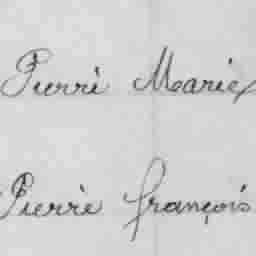 Pierre Marie
Pierre françois